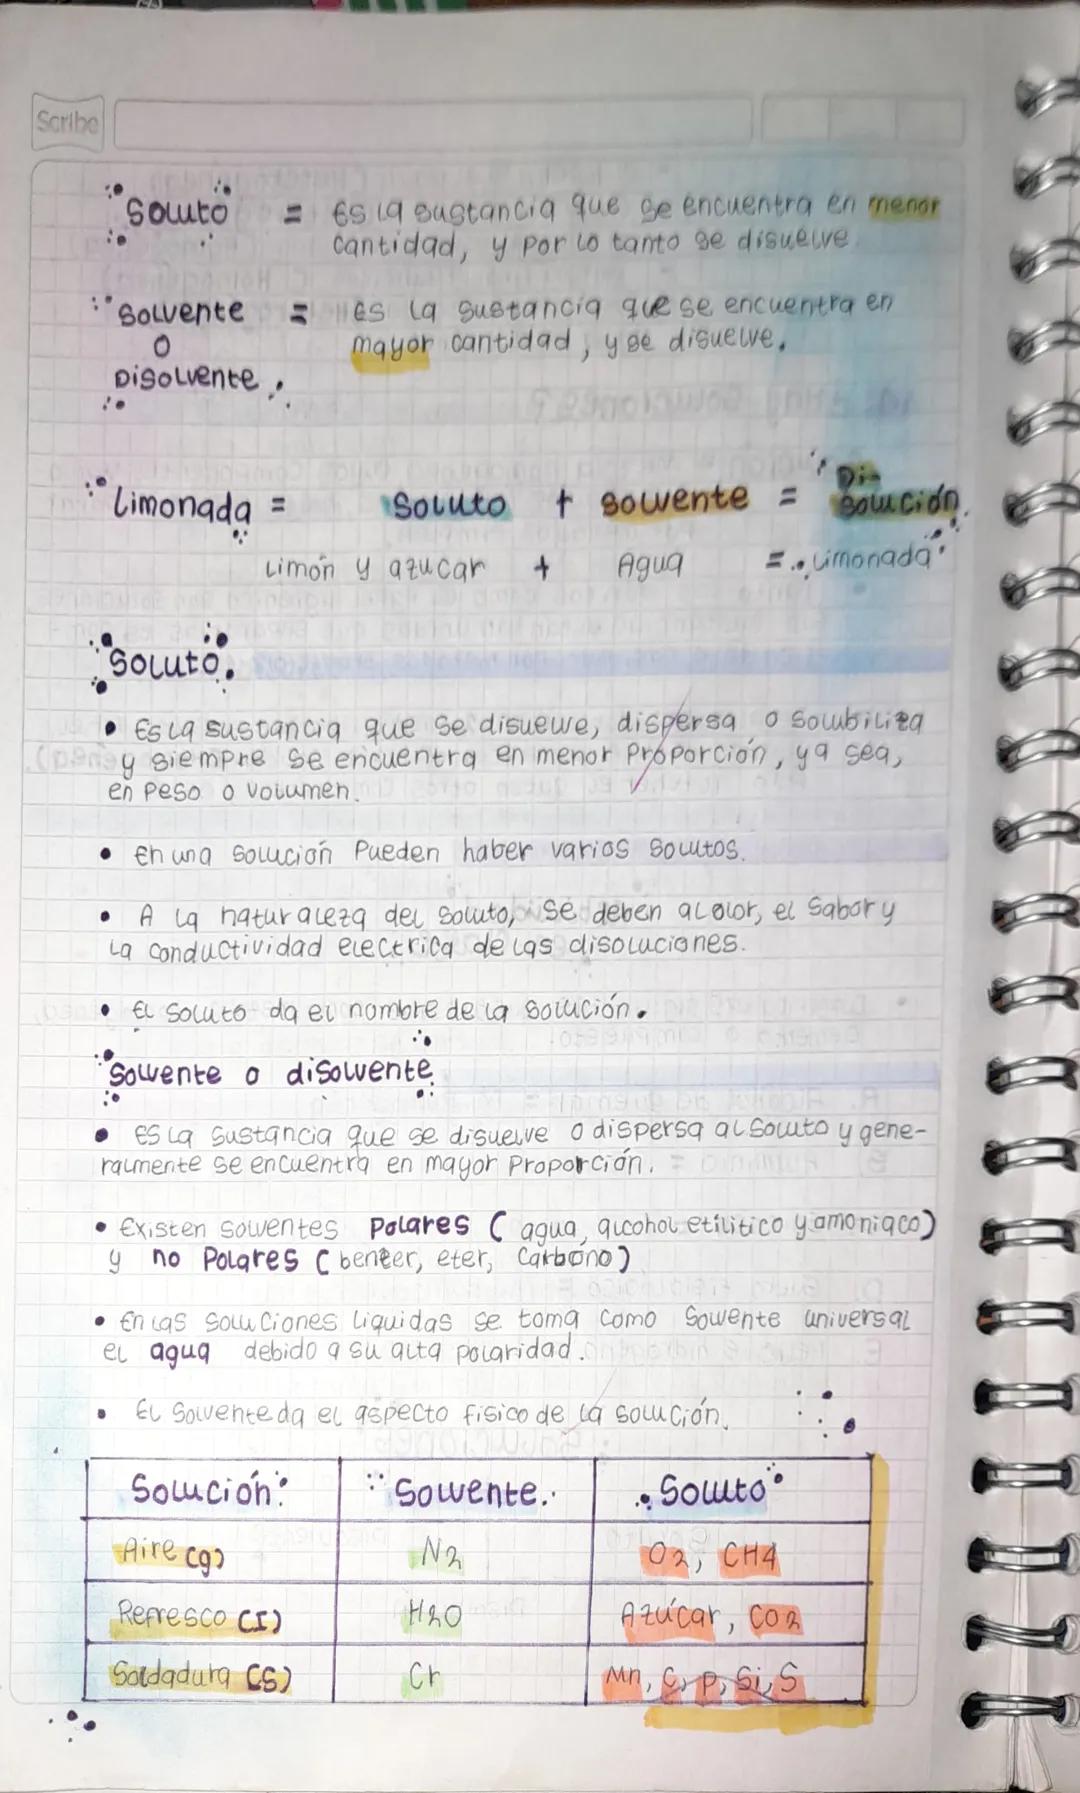 Scribe
Soluto = Es la sustancia que se encuentra en menor
cantidad, y por lo tanto se disuelve.
Solvente = es la sustancia que se encuentra en
o mayor cantidad, y se disuelve.
Disolvente
Limonada = Soluto + solvente = Di-
solución.
Limón y azucar + Agua = Limonada
Soluto.
• Es la sustancia que se disuelve, dispersa o solubiliza
y siempre se encuentra en menor Proporción, ya sea,
en peso o volumen.
• En una solución Pueden haber varios solutos.
• A la naturaleza del soluto, se deben al color, el sabor y
la conductividad electrica de las disoluciones.
• El soluto da el nombre de la solución.
Solvente o disolvente
• Es la sustancia que se disuelve o dispersa al soluto y gene-
ralmente se encuentra en mayor Proporción.
• Existen solventes Polares ( agua, alcohol etilitico y amoniaco)
y no Polares ( benzer, eter, Carbono)
• En las soluciones liquidas se toma como solvente universal
el agua debido a su alta polaridad.
• El solvente da el aspecto fisico de la solución.
Solución: Solvente. Soluto
Aire (g) N2 O2, CH4
Refresco (I) H2O Azúcar, CO2
Soldadura (S) Cr Mn, C, P, Si, S